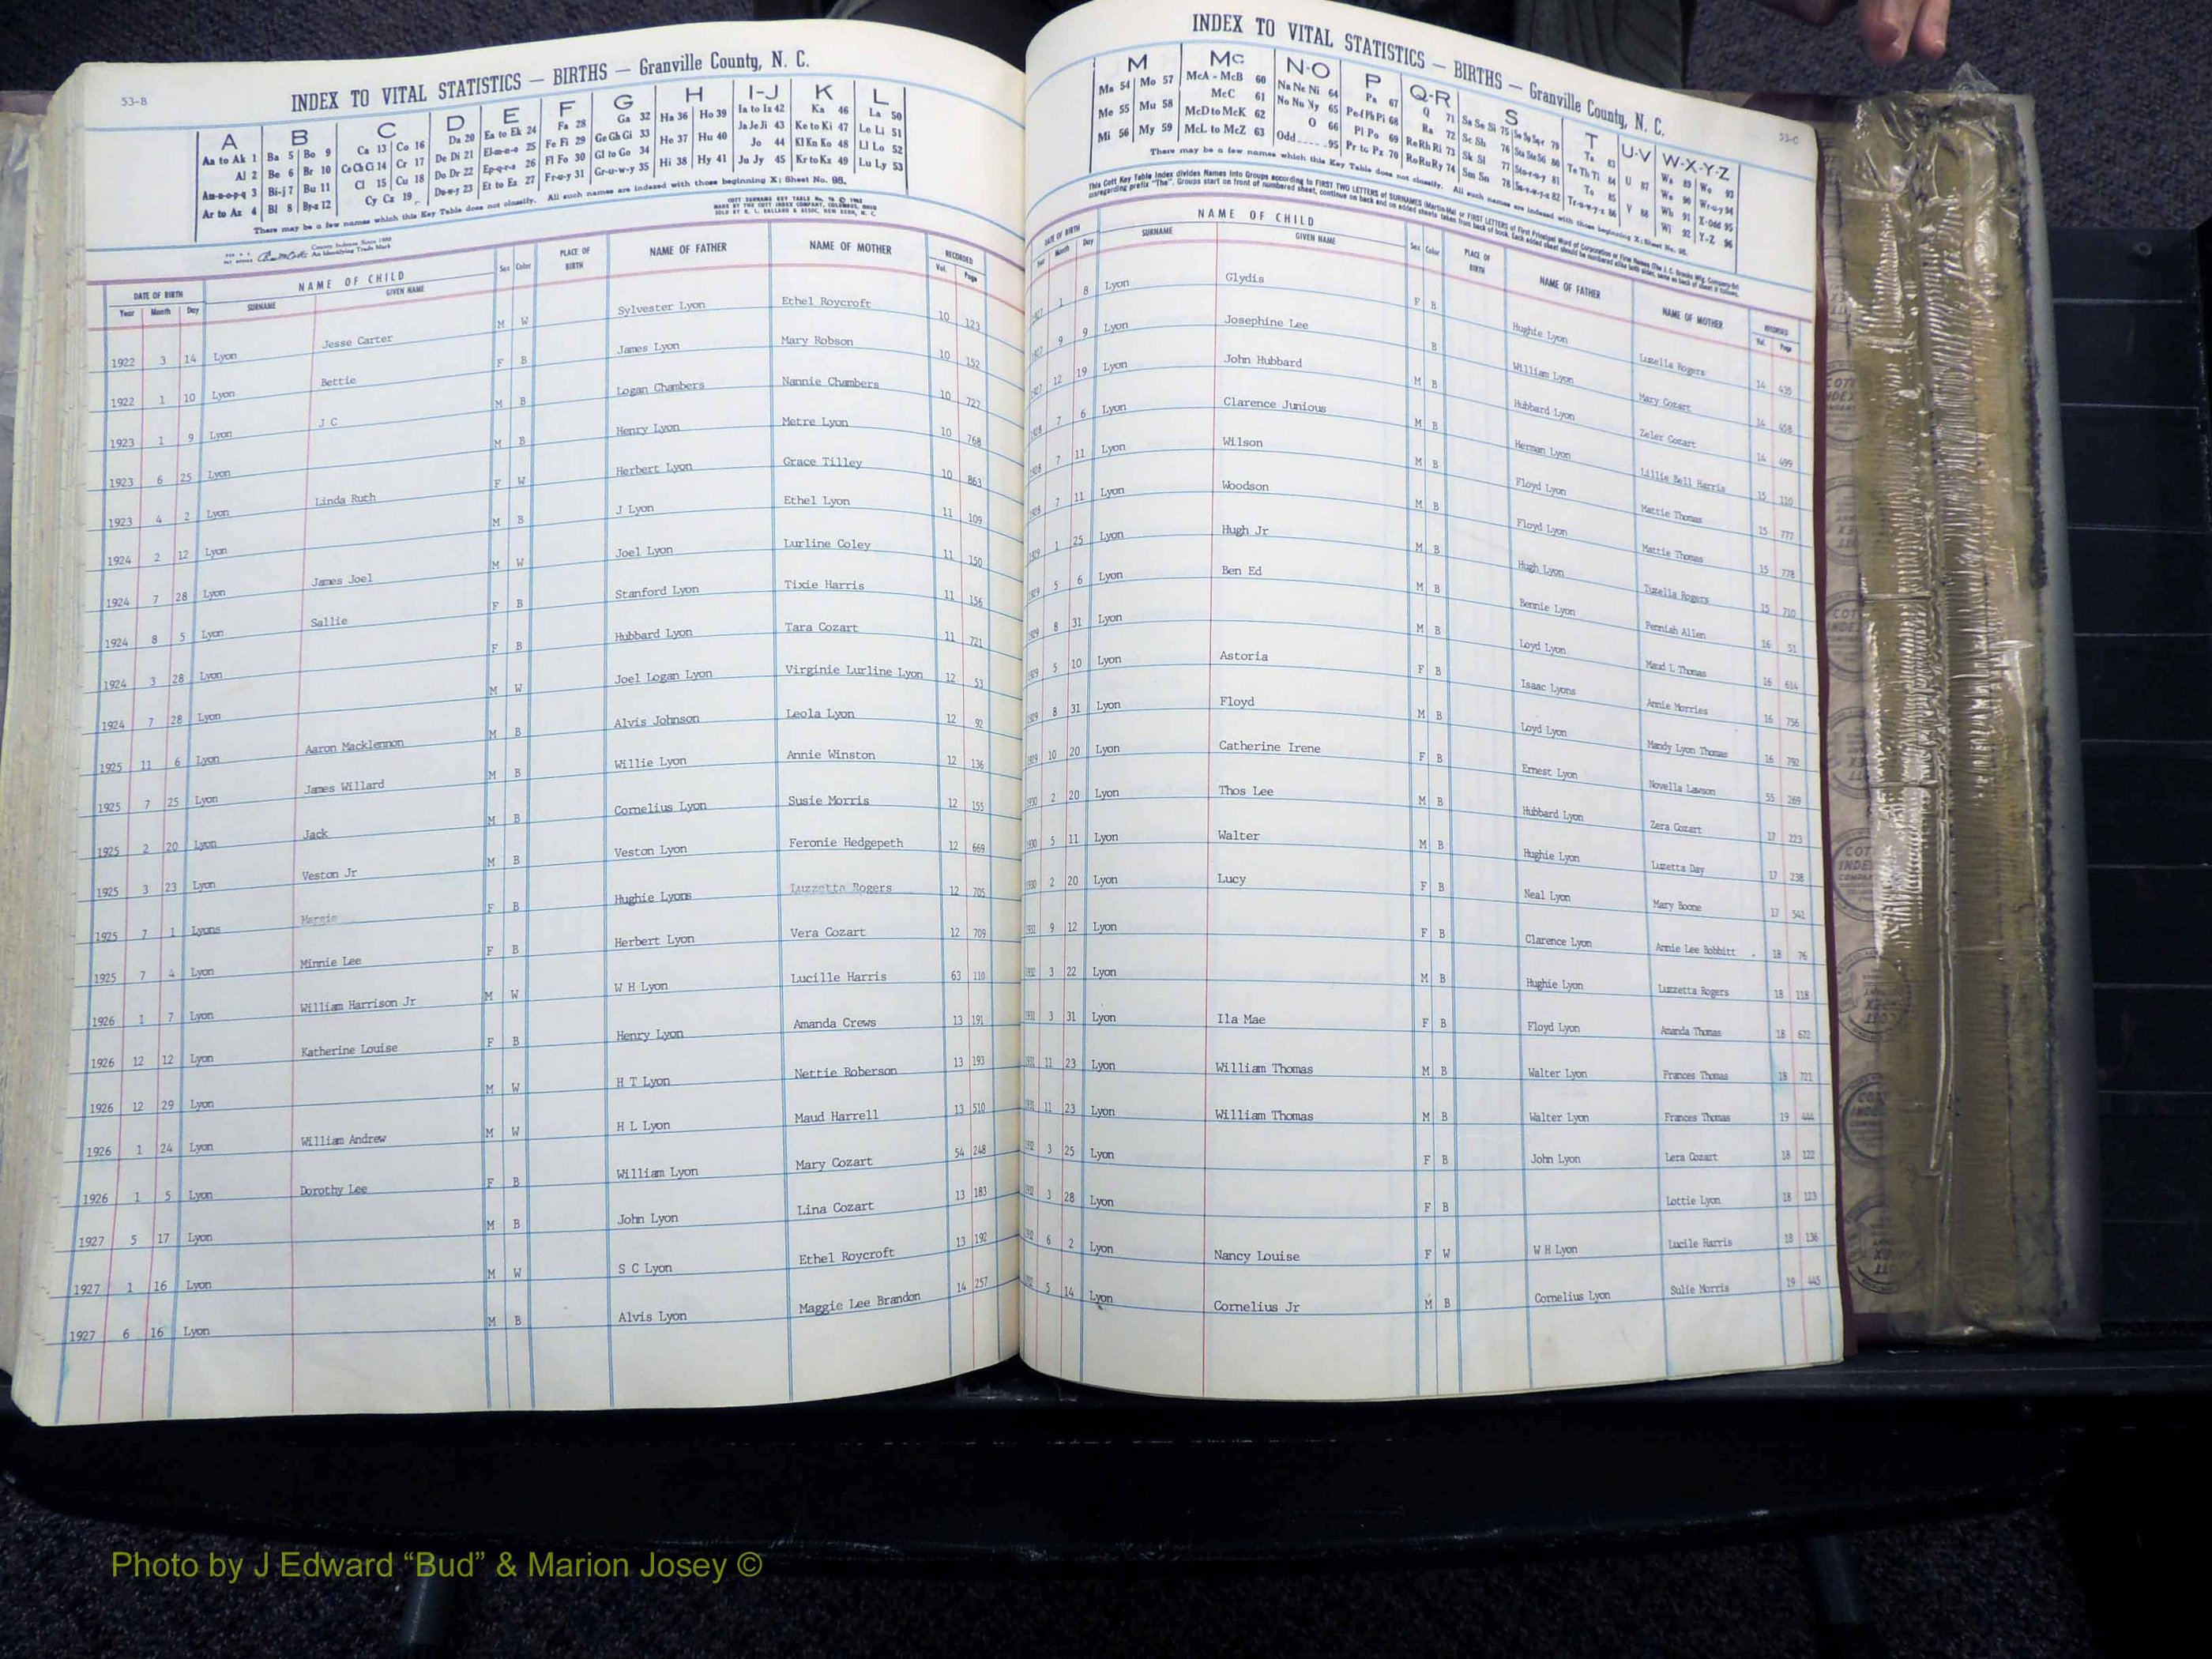 53-B
INDEX TO VITAL STATISTICS — BIRTHS — Granville County, N. C.
A B C D E F G H I-J K L
Aa to Ak 1 Ba 5 Bo 9 Ca 13 Co 16 Da 20 Ea to Ek 24 Fa 28 Ga 32 Ha 36 Ho 39 Ia to Iz 42 Ka 46 La 50
Al 2 Be 6 Br 10 Ce Ch Ci 14 Cr 17 De Di 21 El-m-n-o 25 Fe Fi 29 Ge Gh Gi 33 He 37 Hu 40 Ja Je Ji 43 Ke to Ki 47 Le Li 51
Am-n-o-p-q 3 Bi-j 7 Bu 11 Cl 15 Cu 18 Do Dr 22 Ep-q-r-s 26 Fl Fo 30 Gl to Go 34 Hi 38 Hy 41 Jo 44 Kl Kn Ko 48 Ll Lo 52
Ar to Az 4 Bl 8 By-z 12 Cy Cz 19 Du-w-y 23 Et to Ez 27 Fr-u-y 31 Gr-u-w-y 35 Ju Jy 45 Kr to Kx 49 Lu Ly 53
There may be a few names which this Key Table does not classify. All such names are indexed with those beginning X; Sheet No. 95.
NAME OF CHILD
DATE OF BIRTH SURNAME GIVEN NAME Sex Color PLACE OF BIRTH NAME OF FATHER NAME OF MOTHER RECORDED
Year Month Day Vol. Page
1922 3 14 Lyon Jesse Carter M W Sylvester Lyon Ethel Roycroft 10 123
1922 1 10 Lyon Bettie F B James Lyon Mary Robson 10 152
1923 1 9 Lyon J C M B Logan Chambers Nannie Chambers 10 727
1923 6 25 Lyon M B Henry Lyon Metre Lyon 10 768
1923 4 2 Lyon Linda Ruth F W Herbert Lyon Grace Tilley 10 863
1924 2 12 Lyon M B J Lyon Ethel Lyon 11 109
1924 7 28 Lyon James Joel M W Joel Lyon Lurline Coley 11 150
1924 8 5 Lyon Sallie F B Stanford Lyon Tixie Harris 11 156
1924 3 28 Lyon F B Hubbard Lyon Tara Cozart 11 721
1924 7 28 Lyon M W Joel Logan Lyon Virginie Lurline Lyon 12 53
1925 11 6 Lyon Aaron Macklennon M B Alvis Johnson Leola Lyon 12 92
1925 7 25 Lyon James Willard M B Willie Lyon Annie Winston 12 136
1925 2 20 Lyon Jack M B Cornelius Lyon Susie Morris 12 155
1925 3 23 Lyon Veston Jr M B Veston Lyon Feronie Hedgepeth 12 669
1925 7 1 Lyons F B Hughie Lyons Luzzetta Rogers 12 705
1925 7 4 Lyon Minnie Lee F B Herbert Lyon Vera Cozart 12 709
1926 1 7 Lyon William Harrison Jr M W W H Lyon Lucille Harris 63 110
1926 12 12 Lyon Katherine Louise F B Henry Lyon Amanda Crews 13 191
1926 12 29 Lyon M W H T Lyon Nettie Roberson 13 193
1926 1 24 Lyon William Andrew M W H L Lyon Maud Harrell 13 510
1926 1 5 Lyon Dorothy Lee F B William Lyon Mary Cozart 54 248
1927 5 17 Lyon M B John Lyon Lina Cozart 13 183
1927 1 16 Lyon M W S C Lyon Ethel Roycroft 13 192
1927 6 16 Lyon M B Alvis Lyon Maggie Lee Brandon 14 257
53-C
INDEX TO VITAL STATISTICS — BIRTHS — Granville County, N. C.
M Mc N-O P Q-R S T U-V W-X-Y-Z
There may be a few names which this Key Table does not classify. All such names are indexed with those beginning X; Sheet No. 95.
NAME OF CHILD
DATE OF BIRTH SURNAME GIVEN NAME Sex Color PLACE OF BIRTH NAME OF FATHER NAME OF MOTHER RECORDED
Month Day Vol. Page
1 8 Lyon Glydis F B Hughie Lyon Luzella Rogers 14 435
9 9 Lyon Josephine Lee B William Lyon Mary Cozart 14 458
12 19 Lyon John Hubbard M B Hubbard Lyon Zeler Cozart 14 499
7 6 Lyon Clarence Junious M B Herman Lyon Lillie Bell Harris 15 110
7 11 Lyon Wilson M B Floyd Lyon Mattie Thomas 15 777
7 11 Lyon Woodson M B Floyd Lyon Mattie Thomas 15 778
1 25 Lyon Hugh Jr M B Hugh Lyon Tuzella Rogers 15 710
5 6 Lyon Ben Ed M B Bennie Lyon Penniah Allen 16 51
8 31 Lyon M B Loyd Lyon Maud L Thomas 16 614
5 10 Lyon Astoria F B Isaac Lyons Annie Morries 16 756
8 31 Lyon Floyd M B Loyd Lyon Mandy Lyon Thomas 16 792
10 20 Lyon Catherine Irene F B Ernest Lyon Novella Lawson 55 269
2 20 Lyon Thos Lee M B Hubbard Lyon Zera Cozart 17 223
5 11 Lyon Walter M B Hughie Lyon Luzetta Day 17 238
2 20 Lyon Lucy F B Neal Lyon Mary Boone 17 541
9 12 Lyon F B Clarence Lyon Annie Lee Bobbitt 18 76
3 22 Lyon M B Hughie Lyon Luzzetta Rogers 18 118
3 31 Lyon Ila Mae F B Floyd Lyon Amanda Thomas 18 672
11 23 Lyon William Thomas M B Walter Lyon Frances Thomas 18 721
11 23 Lyon William Thomas M B Walter Lyon Frances Thomas 19 444
3 25 Lyon F B John Lyon Lera Cozart 18 122
3 28 Lyon F B Lottie Lyon 18 123
6 2 Lyon Nancy Louise F W W H Lyon Lucile Harris 18 136
5 14 Lyon Cornelius Jr M B Cornelius Lyon Sulie Morris 19 445
Photo by J Edward “Bud” & Marion Josey ©